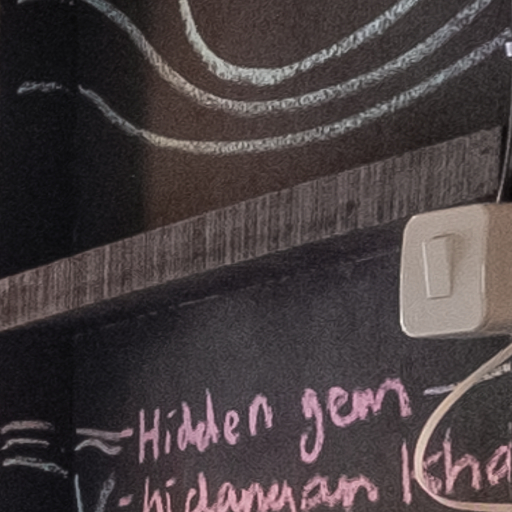 Hidden gem
-hidangan kha